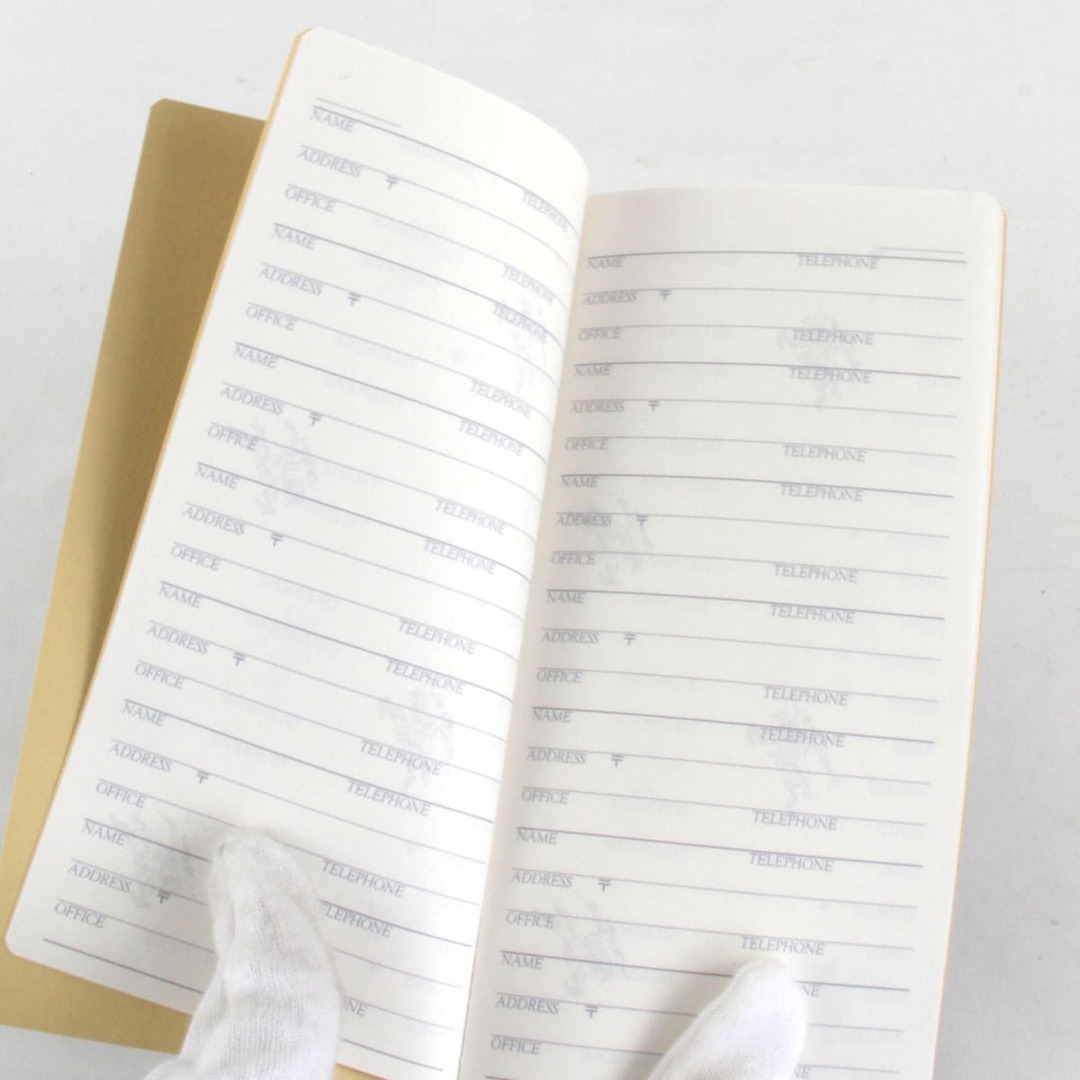 NAME TELEPHONE
ADDRESS 〒
OFFICE TELEPHONE
NAME TELEPHONE
ADDRESS 〒
OFFICE TELEPHONE
NAME TELEPHONE
ADDRESS 〒
OFFICE TELEPHONE
NAME TELEPHONE
ADDRESS 〒
OFFICE TELEPHONE
NAME TELEPHONE
ADDRESS 〒
OFFICE TELEPHONE
NAME TELEPHONE
ADDRESS 〒
OFFICE TELEPHONE
NAME LEPHONE
ADDRESS 〒
OFFICE NE
NAME TELEPHONE
ADDRESS 〒
OFFICE TELEPHONE
NAME TELEPHONE
ADDRESS 〒
OFFICE TELEPHONE
NAME TELEPHONE
ADDRESS 〒
OFFICE TELEPHONE
NAME TELEPHONE
ADDRESS 〒
OFFICE TELEPHONE
NAME TELEPHONE
ADDRESS 〒
OFFICE TELEPHONE
NAME TELEPHONE
ADDRESS 〒
OFFICE TELEPHONE
NAME NE
ADDRESS 〒
OFFICE NE